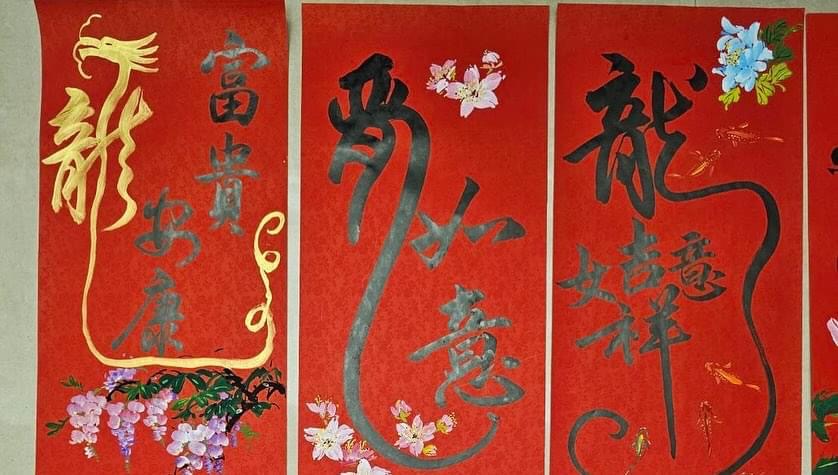 龍
富貴
安康
如意
龍
吉祥
如意